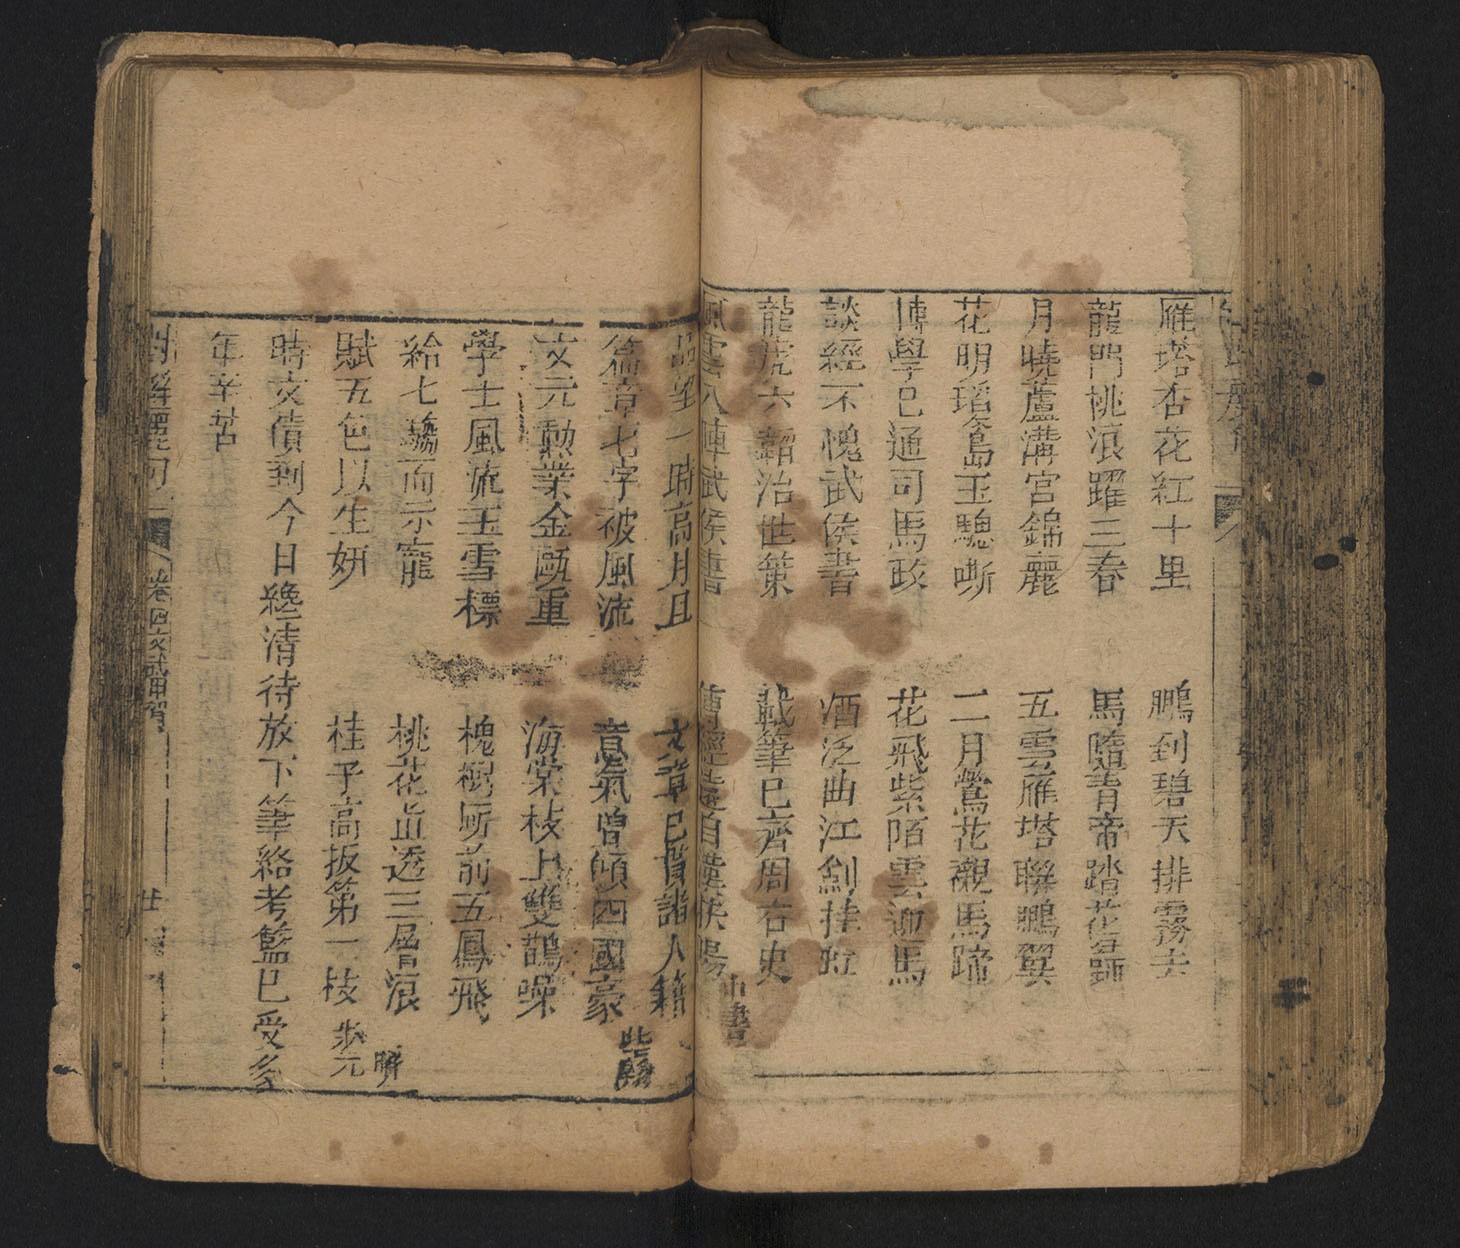 雁塔杏花紅十里　鵬到碧天排霧去
龍門桃浪躍三春　馬隨青帝踏花歸
月曉蘆溝宮錦麗　五雲雁塔聯鵬翼
花明瑤島玉驄嘶　二月鶯花襯馬蹄
博學已通司馬政　花飛紫陌雲迎馬
談經不愧武侯書　酒泛曲江劍挂虹
龍虎六韜治世策　載筆已齊周右史
風雲八陣武侯書　傳經遠自漢侯陽
中書
品望一時高月旦　文章已貴諸人籍
篇章七字被風流　意氣曾傾四國豪
紫翰
文元勳業金甌重　海棠枝上雙鵲噪
學士風流玉雪標　槐樹廳前五鳳飛
給七鷊而示寵　桃花直透三層浪
賦五色以生妍　桂子高扳第一枝
狀元
解
時文債到今日纔清待放下筆絡考籃已受多
年辛苦
卷四文武甲賀
廿